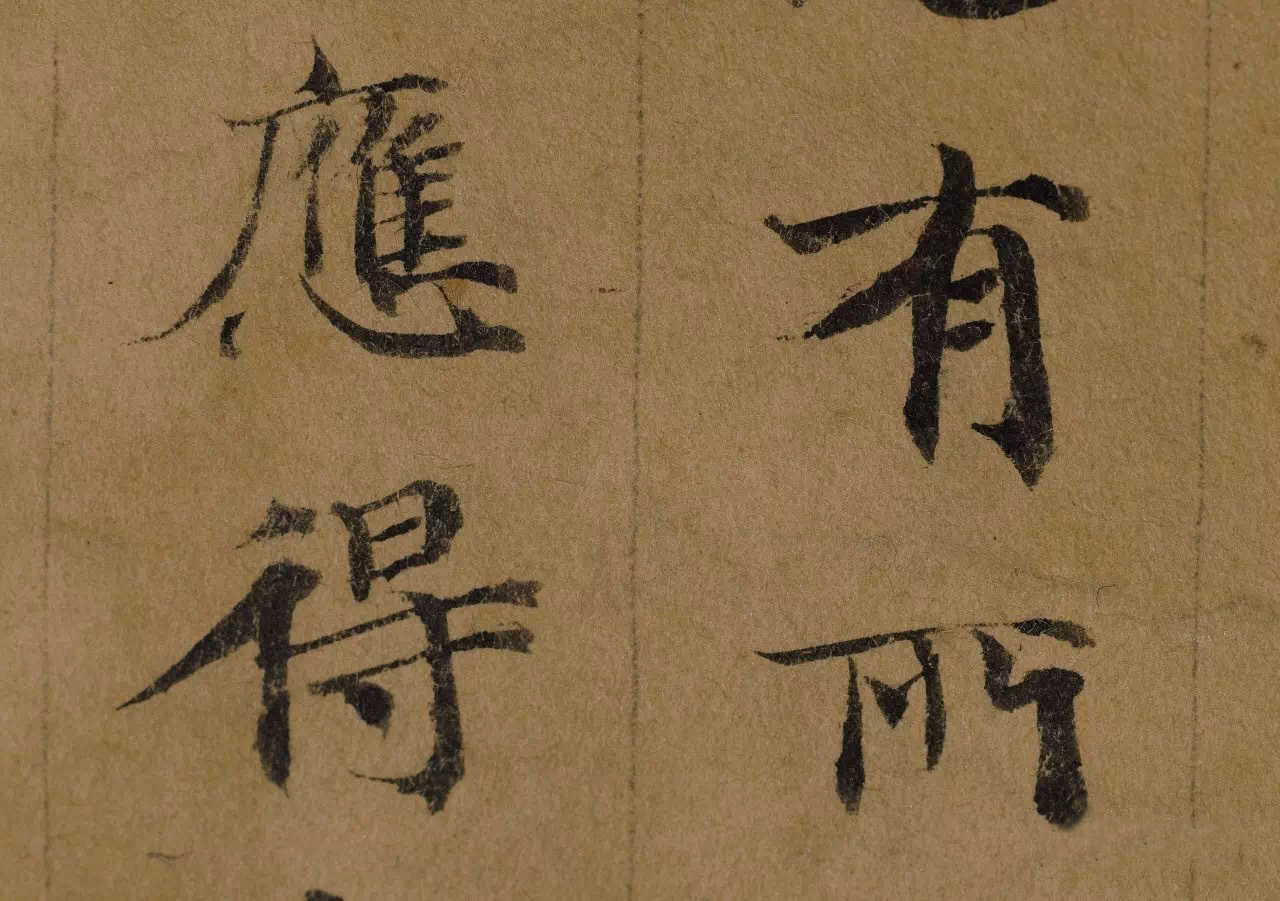 有所
應得